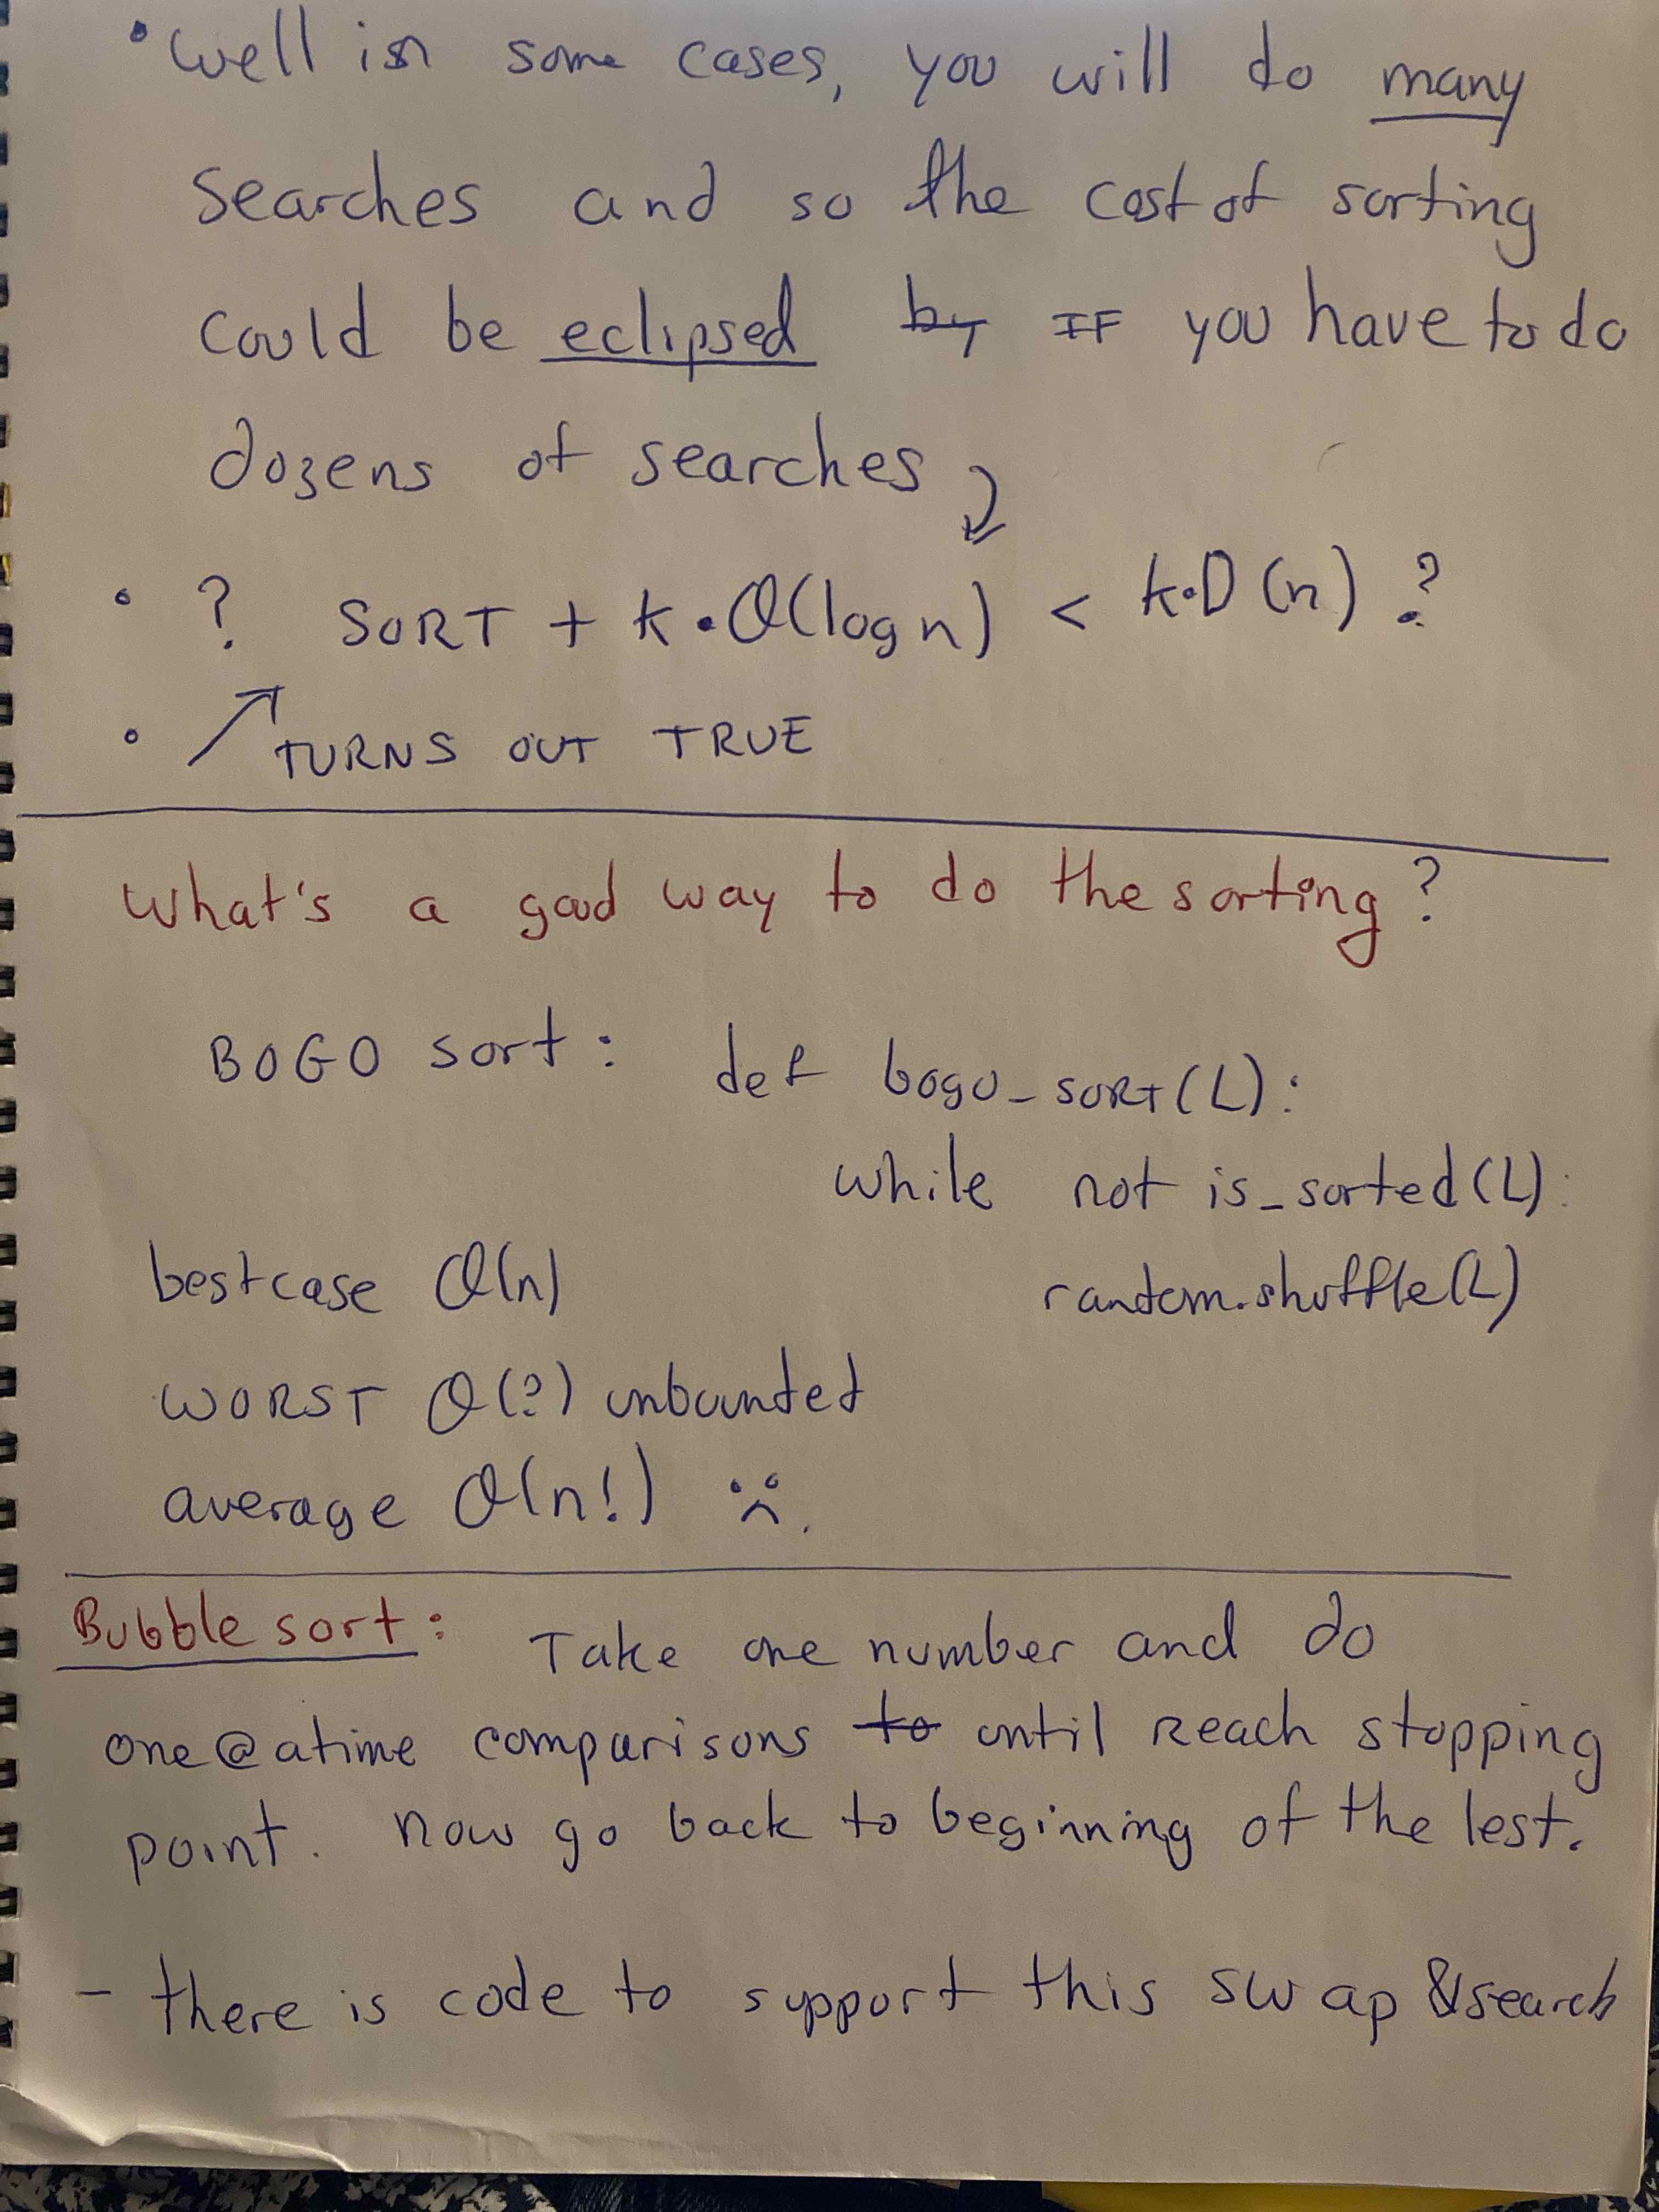 • Well in some cases, you will do many
searches and so the cost of sorting
could be eclipsed by IF you have to do
dozens of searches
• ? SORT + k•O(log n) < k•O(n) ?
• TURNS OUT TRUE
What's a good way to do the sorting?
BOGO sort: def bogo_SORT(L):
while not is_sorted(L):
best case O(n) random.shuffle(L)
WORST O(?) unbounted
average O(n!) :(
Bubble sort: Take one number and do
one@atime comparisons to until reach stopping
point. now go back to beginning of the lest.
- there is code to support this swap & search